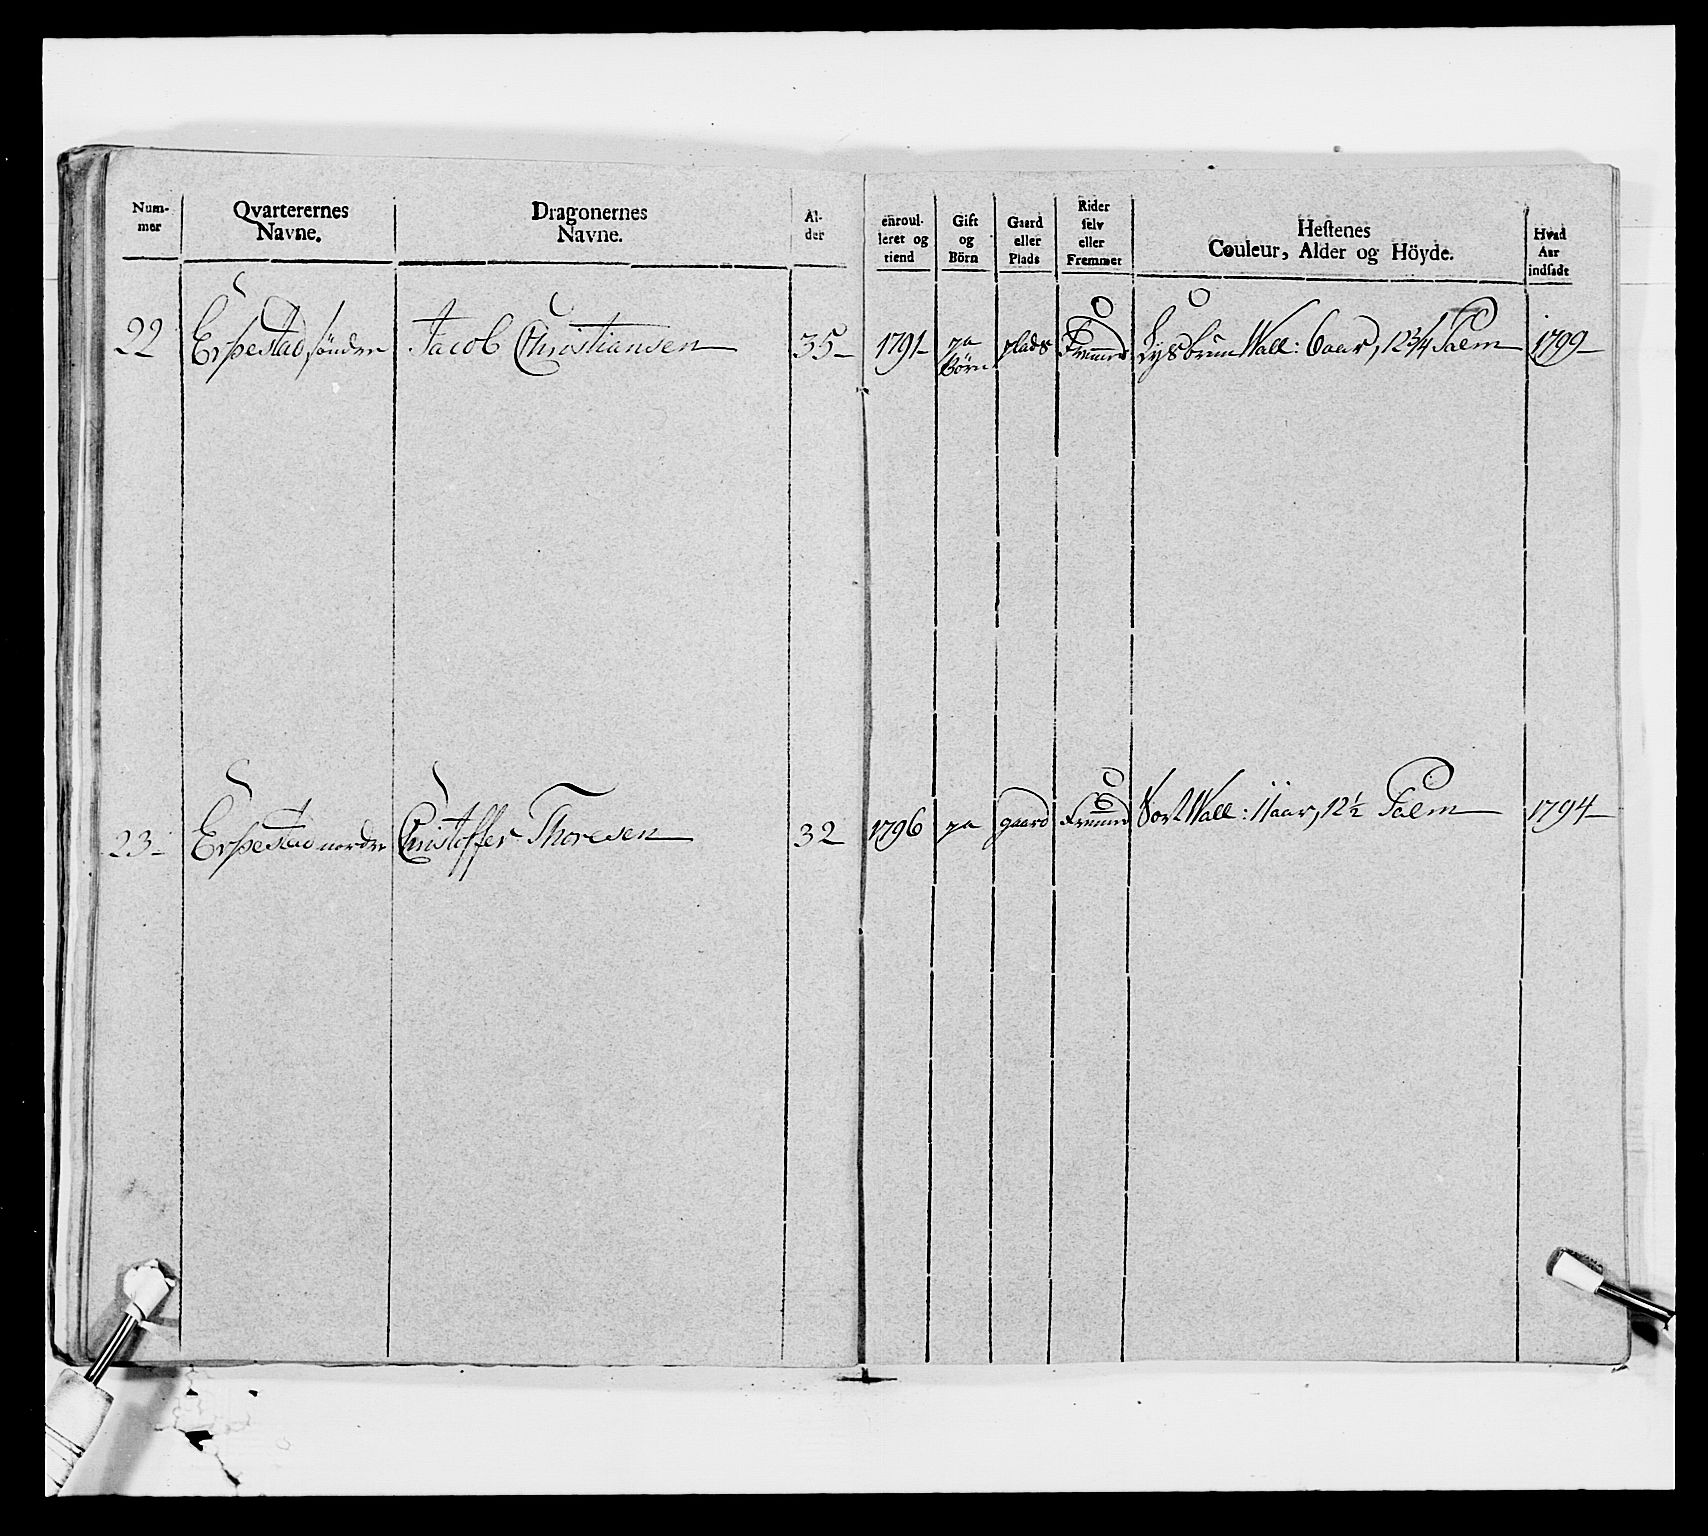 Num- mer
Qvarterernes Navne.
Dragonernes Navne.
Al- der
enroul- leret og tiend
Gift og Börn
Gaard eller Plads
Rider selv eller Fremmet
Hestenes Couleur, Alder og Höyde.
Hvad Aar indsadt
22 Erpestad, sönder Jacob Christiansen 35 1791 ja Börn plads Fremmed Lysbrun Wall: 6 aar, 12 3/4 Palm 1799
23 Erpestad nordre Christoffer Thoresen 32 1796 ja gaard Fremmed Sort Wall: 11 aar, 12 1/2 Palm 1794